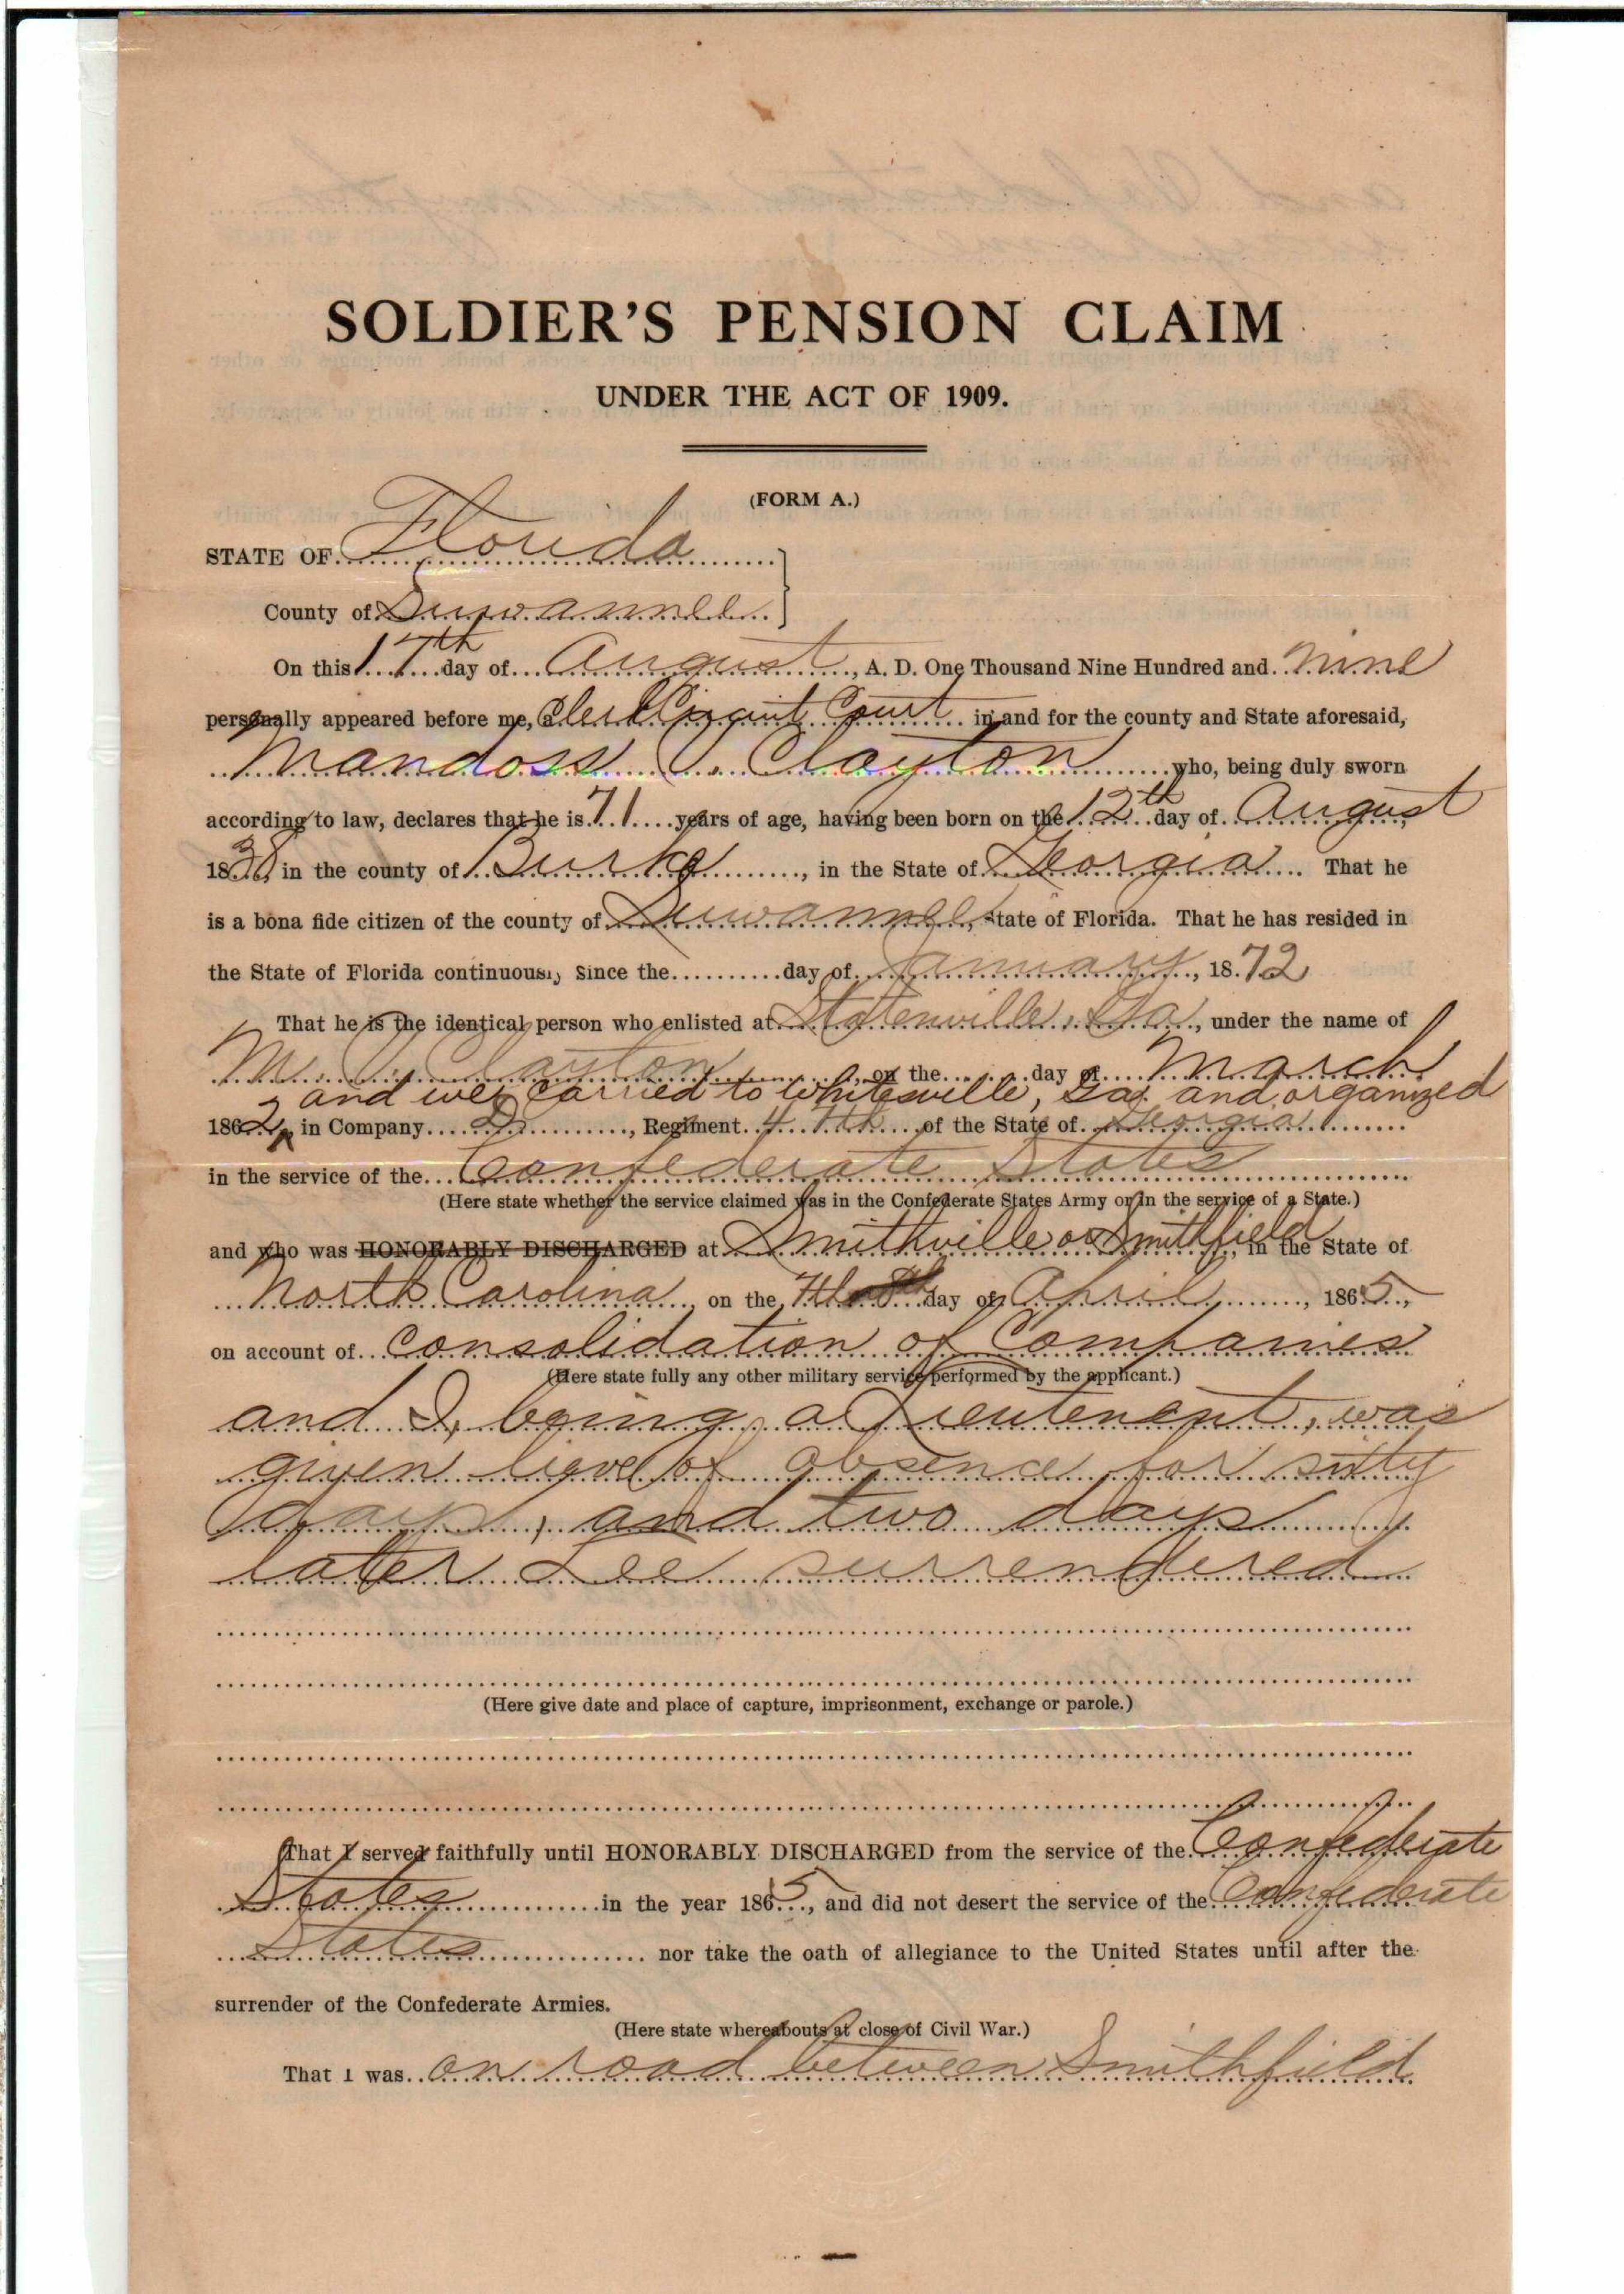 SOLDIER'S PENSION CLAIM
UNDER THE ACT OF 1909.
(FORM A.)
STATE OF Florida
County of Suwannee
On this 17th day of August, A. D. One Thousand Nine Hundred and nine
personally appeared before me, a Clerk Circuit Court in and for the county and State aforesaid,
Mandoss Clayton who, being duly sworn
according to law, declares that he is 71 years of age, having been born on the 12th day of August
1838, in the county of Burke, in the State of Georgia. That he
is a bona fide citizen of the county of Suwannee, State of Florida. That he has resided in
the State of Florida continuously since the day of January, 1872
That he is the identical person who enlisted at Statenville, Ga, under the name of
M. Clayton, on the day of March
and was carried to Whitesville, Ga. and organized
1862, in Company D, Regiment 4 of the State of Georgia
in the service of the Confederate States
(Here state whether the service claimed was in the Confederate States Army or in the service of a State.)
and who was HONORABLY DISCHARGED at Smithville or Smithfield, in the State of
North Carolina, on the 7th day of April, 1865,
on account of consolidation of Companies
(Here state fully any other military service performed by the applicant.)
and I, being a Lieutenent, was
given lieve of absence for sixty
days, and two days
later Lee surrendered
(Here give date and place of capture, imprisonment, exchange or parole.)
That I served faithfully until HONORABLY DISCHARGED from the service of the Confederate
States in the year 1865, and did not desert the service of the Confederate
States nor take the oath of allegiance to the United States until after the
surrender of the Confederate Armies.
(Here state whereabouts at close of Civil War.)
That I was on road between Smithfield